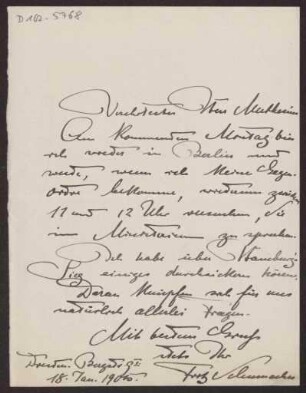 D 102-5768
Verehrtester Herr Muthesius
Am kommenden Montag bin
ich wieder in Berlin und
werde, wenn ich keine Gegen-
ordre bekomme, wiederum zwischen
11 und 12 Uhr versuchen, Sie
im Ministerium zu sprechen.
Ich habe über Hamburg
einiges durchsickern hören.
Daran knüpfen sich für uns
natürlich allerlei Fragen.
Mit bestem Gruß
stets Ihr
Fritz Schumacher
Dresden
18. Jan.